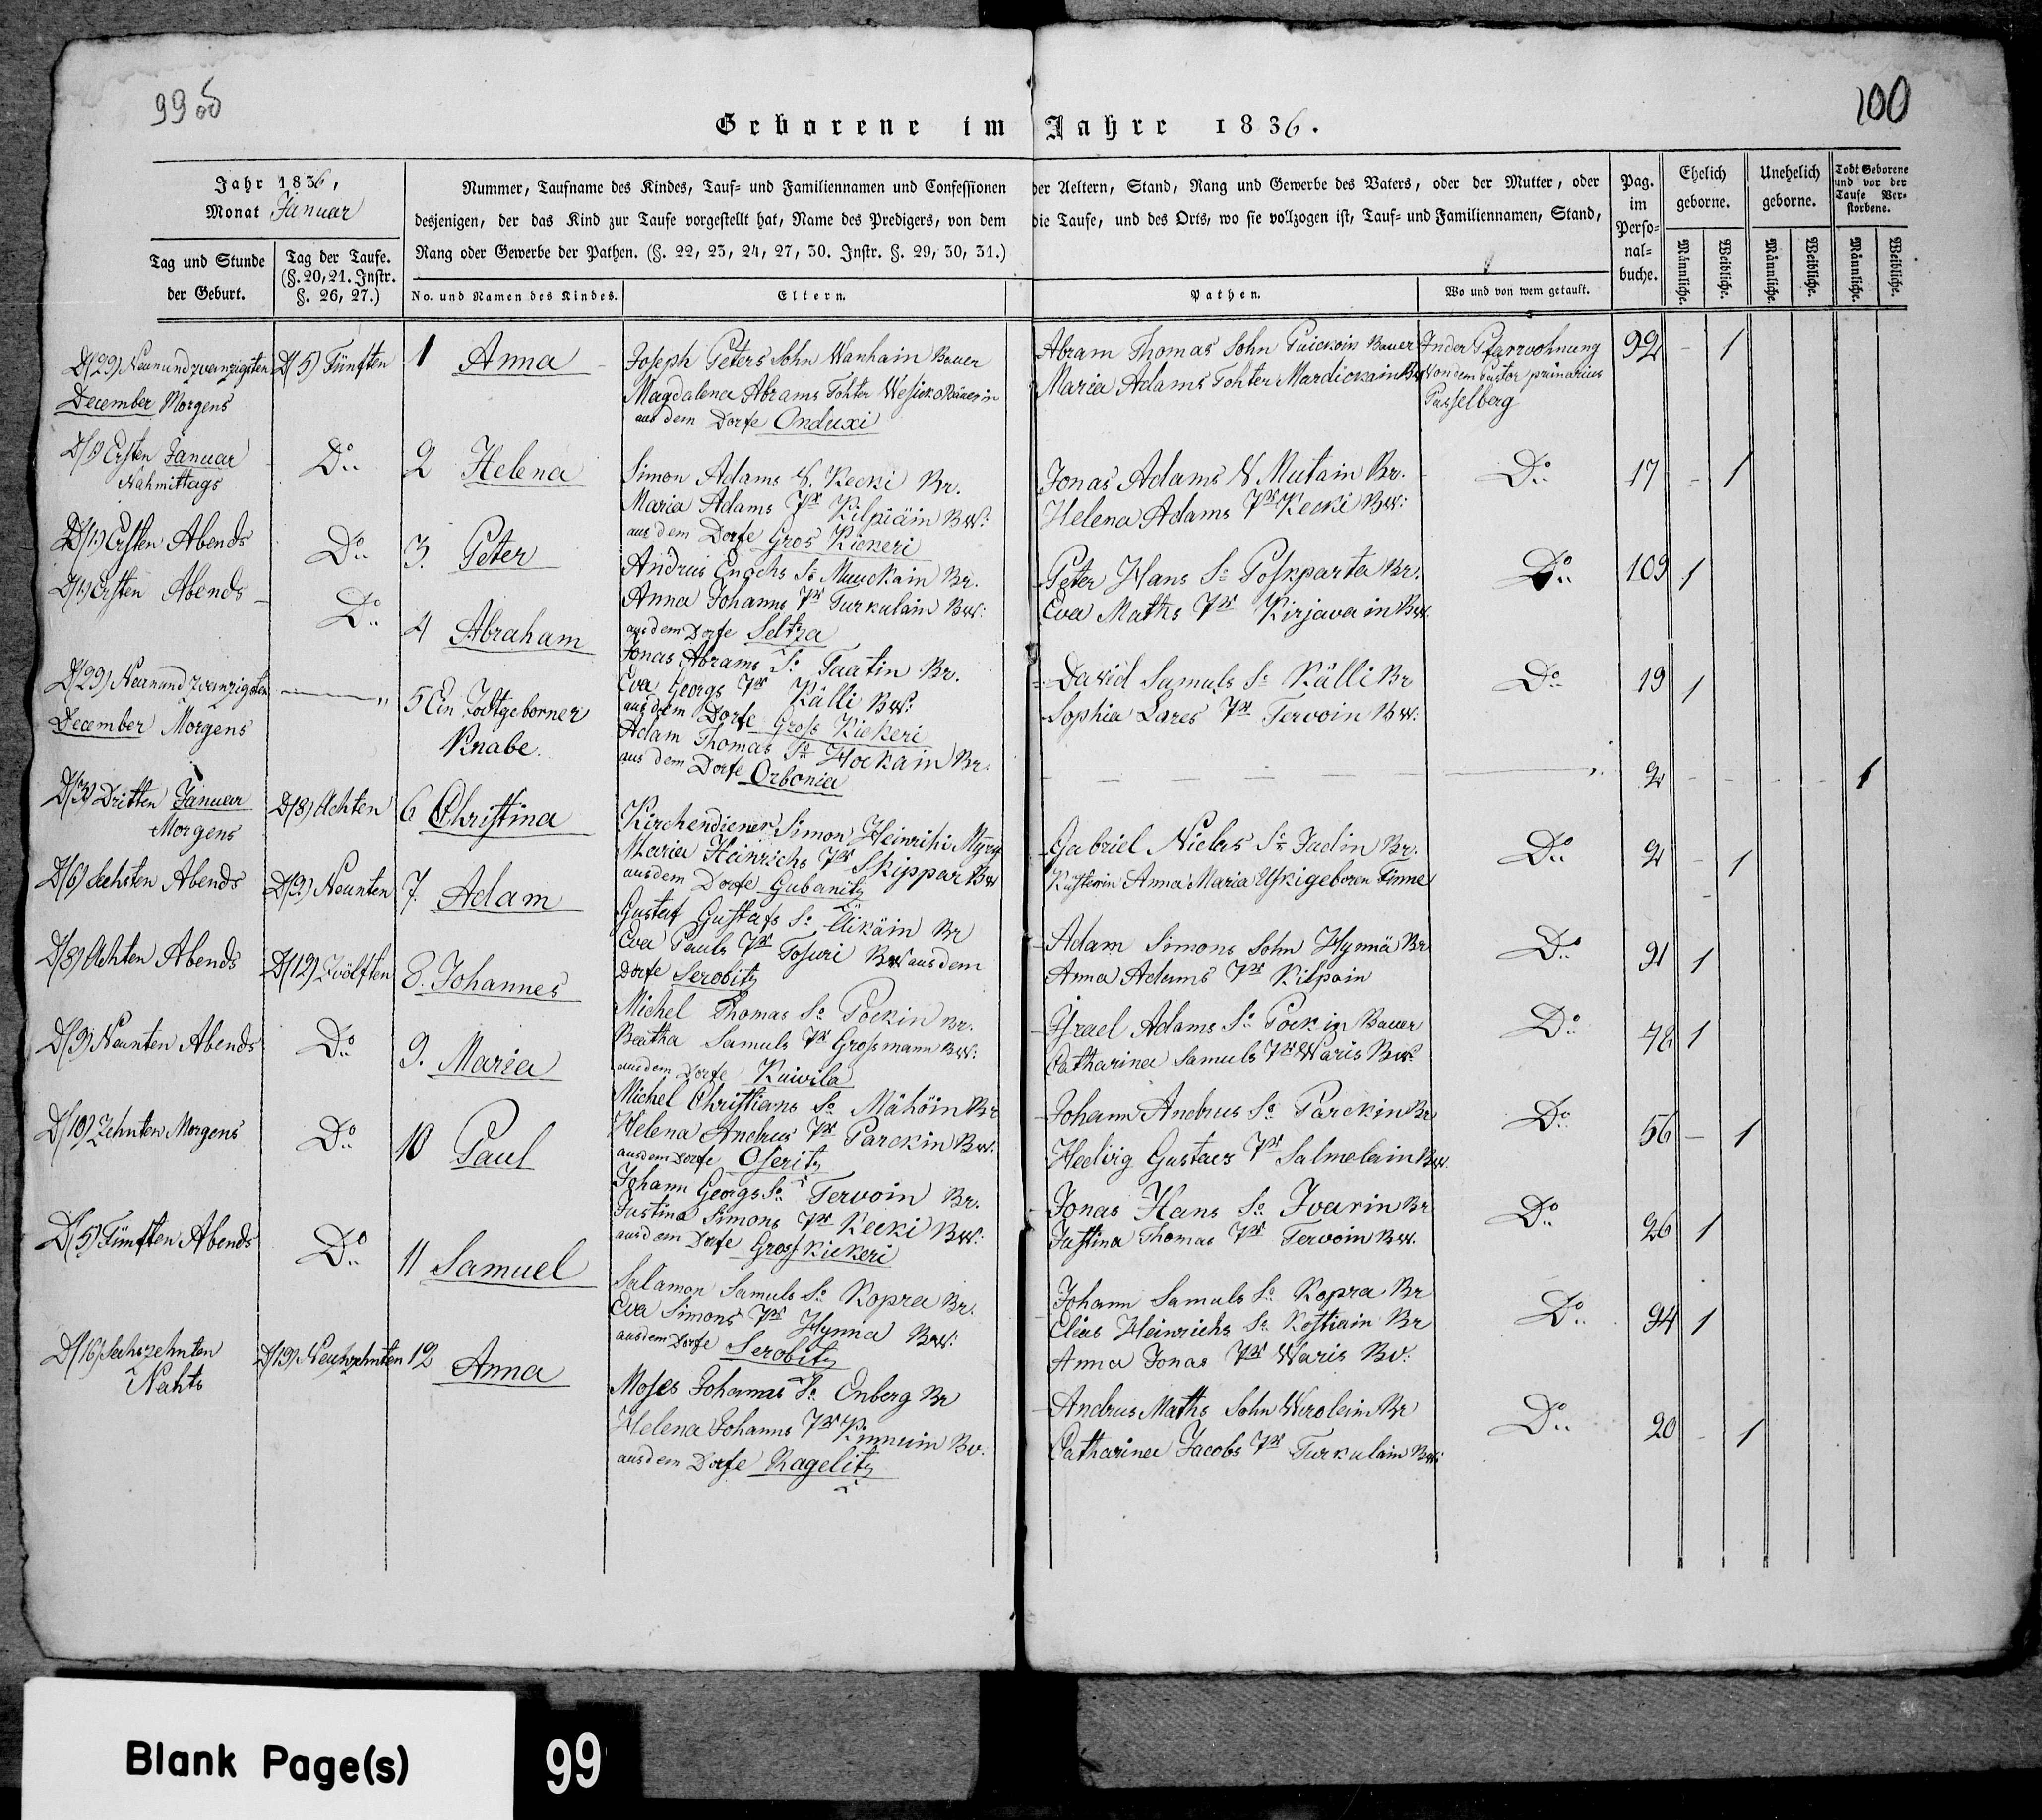 99
100
Geborene im Jahre 1836.
Jahr 1836,
Monat Januar
Tag und Stunde
der Geburt.
Tag der Taufe.
(§. 20, 21. Instr.
§. 26, 27.)
Nummer, Taufname des Kindes, Tauf- und Familiennamen und Confessionen der Aeltern, Stand, Rang und Gewerbe des Vaters, oder der Mutter, oder
desjenigen, der das Kind zur Taufe vorgestellt hat, Name des Predigers, von dem die Taufe, und des Orts, wo sie vollzogen ist, Tauf- und Familiennamen, Stand,
Rang oder Gewerbe der Pathen. (§. 22, 23, 24, 27, 30. Instr. §. 29, 30, 31.)
No. und Namen des Kindes.
Eltern.
Pathen.
Wo und von wem getauft.
Pag.
im
Perso-
nal-
buche.
Ehelich
geborne.
Unehelich
geborne.
Todt Geborene
und vor der
Taufe Ver-
storbene.
Männliche.
Weibliche.
Männliche.
Weibliche.
Männliche.
Weibliche.
D(29) Neunundzwanzigsten
December Morgens
D(5) Fünften
1 Anna
Joseph Peters Sohn Wanhain Bauer
Magdalena Abrams Tohter Bäuerin
aus dem Dorfe Onduxi
Abram Thomas Sohn Puickoin Bauer
Maria Adams Tohter Mardickain Bw
In der Pfarrwohnung
Von dem Pastor primarius
Passelberg
92 - 1
D(1) Ersten Januar
Nahmittags
Do
2 Helena
Simon Adams S. Kecki Br.
Maria Adams Tr Kilpiäin Bw:
aus dem Dorfe Gros Kiekeri
Jonas Adams S Mutain Br.
Helena Adams Tr Kecki Bw:
Do
17 - 1
D(1) Ersten Abends
Do
3. Peter
Andrus Enochs So Muuckain Br.
Anna Johanns Tr Turkulain Bw:
aus dem Dorfe Seltza
Peter Hans So Poskparta Br.
Eva Maths Tr Kirjavain Bw.
Do
109 1
D(1) Ersten Abends
Do
4 Abraham
Jonas Abrams So Taatin Br.
Eva Georgs Tr Källi Bw:
aus dem Dorfe Gross Kiekeri
David Samuls So Källi Br
Sophia Lares Tr Tervoin Bw:
Do
19 1
D(29) Neunundzwanzigsten
December Morgens
5 Ein Todtgeborner
Knabe.
Adam Thomas So Hockain Br.
aus dem Dorfe Orbonia
2 - - - - 1
D(3) Dritten Januar
Morgens
D(8) Achten
6 Christina
Kirchendiener Simon Heinrichi Myry
Maria Heinrichs Tr Skippar Bw
aus dem Dorfe Gubanitz
Gabriel Niclas So Jadin Br.
Küsterin Anna Maria Uski geboren Finne
Do
2 - 1
D(6) Sechsten Abends
D(9) Neunten
7. Adam
Gustaf Gustafs So Üikäin Br
Eva Pauls Tr Tosuri Bw aus dem
Dorfe Serobitz
Adam Simons Sohn Hynnä Br
Anna Adams Tr Kilpain
Do
91 1
D(8) Achten Abends
D(12) Zwölften
8. Johannes
Michel Thomas So Pockin Br.
Beatha Samuls Tr Grossmann Bw:
aus dem Dorfe Kuivila
Israel Adams So Pockin Bauer
Catharina Samuls Tr Waris Bw:
Do
48 1
D(9) Neunten Abends
Do
9. Maria
Michel Christians So Mähöin Br
Helena Andrus Tr Parckin Bw.
aus dem Dorfe Oseritz
Johann Andrus So Parckin Br
Hedvig Gustavs Tr Salmelain Bw.
Do
56 - 1
D(10) Zehnten Morgens
Do
10 Paul
Johann Georgs So Tervoin Br.
Justina Simons Tr Kecki Bw:
aus dem Dorfe Gross Kiekeri
Jonas Hans So Ivarin Br
Justina Thomas Tr Tervoin Bw.
Do
26 1
D(5) Fünften Abends
Do
11 Samuel
Salamon Samuls So Kopra Br.
Eva Simons Tr Hynna Bw:
aus dem Dorfe Serobitz
Johann Samuls So Kopra Br
Elias Heinrichs So Kostiain Br
Anna Jonas Tr Waris Bw:
Do
94 1
D(16) Sechszehnten
Nahts
D(19) Neunzehnten
12 Anna
Moses Johanns So Enberg Br
Helena Johanns Tr Kinnuin Bw.
aus dem Dorfe Ragelitz
Andrus Maths Sohn Wirolain Br
Catharina Jacobs Tr Turkulain Bw:
Do
20 - 1
Blank Page(s)
99